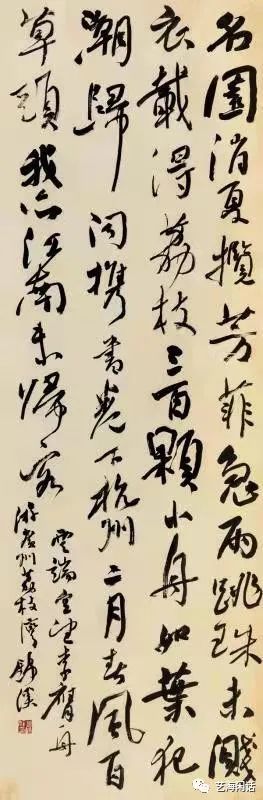 名園消夏攬芳菲急雨跳珠未濺
衣載得荔枝三百顆小舟如葉犯
潮歸 閒攜書卷下杭州二月春風百
草頭我亦江南未歸客
雲端空望李膺舟
游廣州荔枝灣 錦
艺海闲话